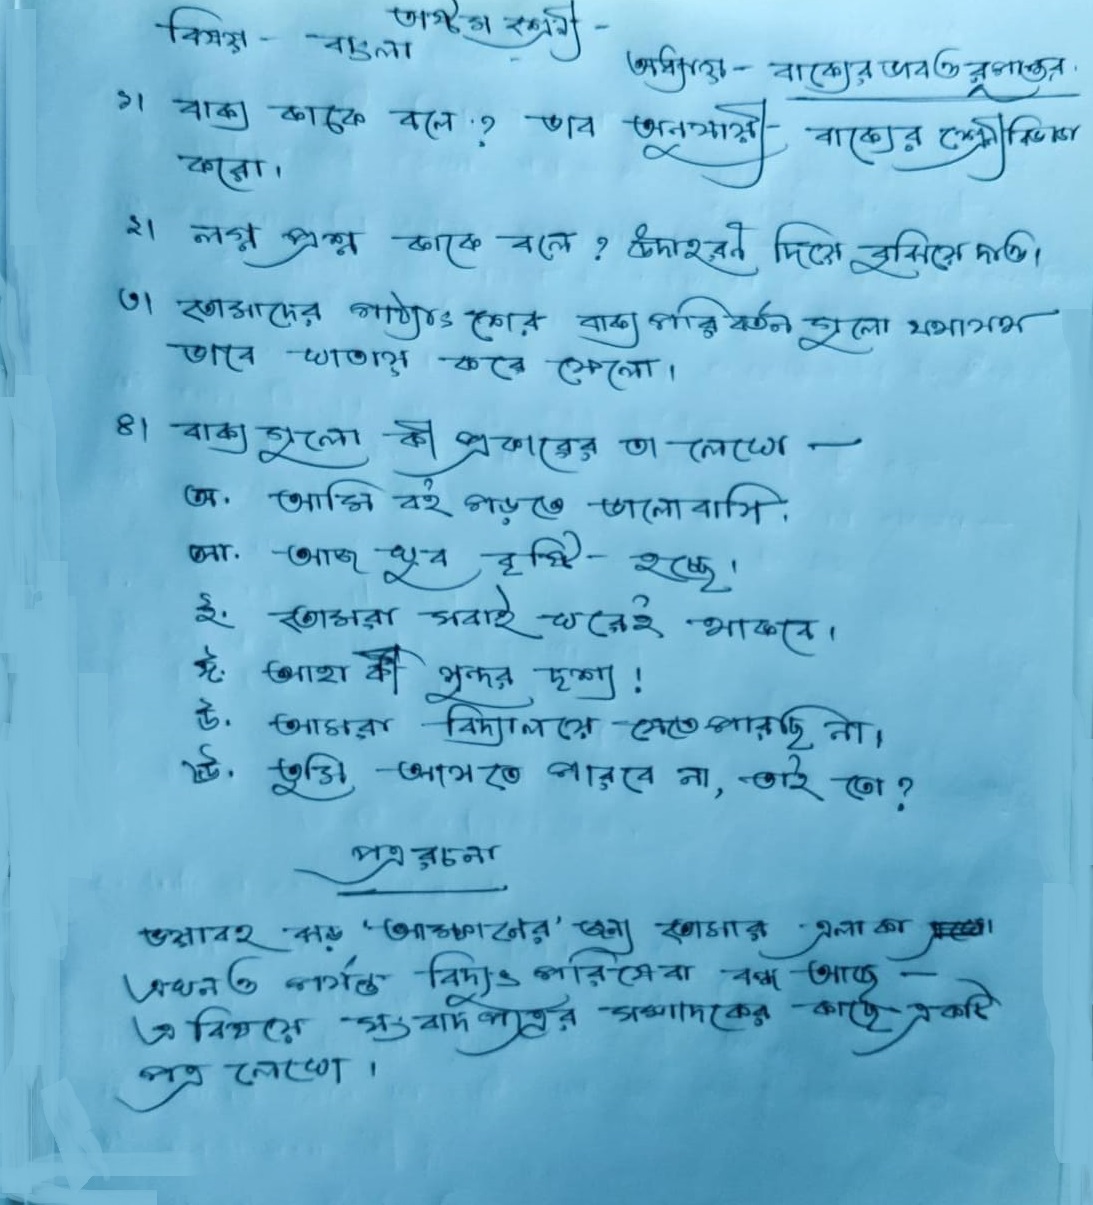 অষ্টম শ্রেণী -
বিষয় - বাংলা
অধ্যায় - বাক্যের ভাব ও রূপান্তর.
১। বাক্য কাকে বলে.? ভাব অনুসারে বাক্যের শ্রেণীবিভাগ
করো।
২। লগ্ন প্রশ্ন কাকে বলে? উদাহরণ দিয়ে বুঝিয়ে দাও।
৩। তোমাদের পাঠ্যাংশের বাক্য পরিবর্তন গুলো যথাযথ
ভাবে খাতায় করে ফেলো।
৪। বাক্য গুলো কী প্রকারের তা লেখো —
অ. আমি বই পড়তে ভালোবাসি.
আ. আজ খুব বৃষ্টি হচ্ছে।
ই. তোমরা সবাই ঘরেই থাকবে।
ঈ. আহা কী সুন্দর দৃশ্য!
উ. আমরা বিদ্যালয়ে যেতে পারছি না।
ঊ. তুমি আসতে পারবে না, তাই তো?
পত্র রচনা
ভয়াবহ ঝড় 'আমফানের' জন্য তোমার এলাকা
এখনও পর্যন্ত বিদ্যুৎ পরিসেবা বন্ধ আছে —
এ বিষয়ে সংবাদপত্রের সম্পাদকের কাছে একটি
পত্র লেখো।